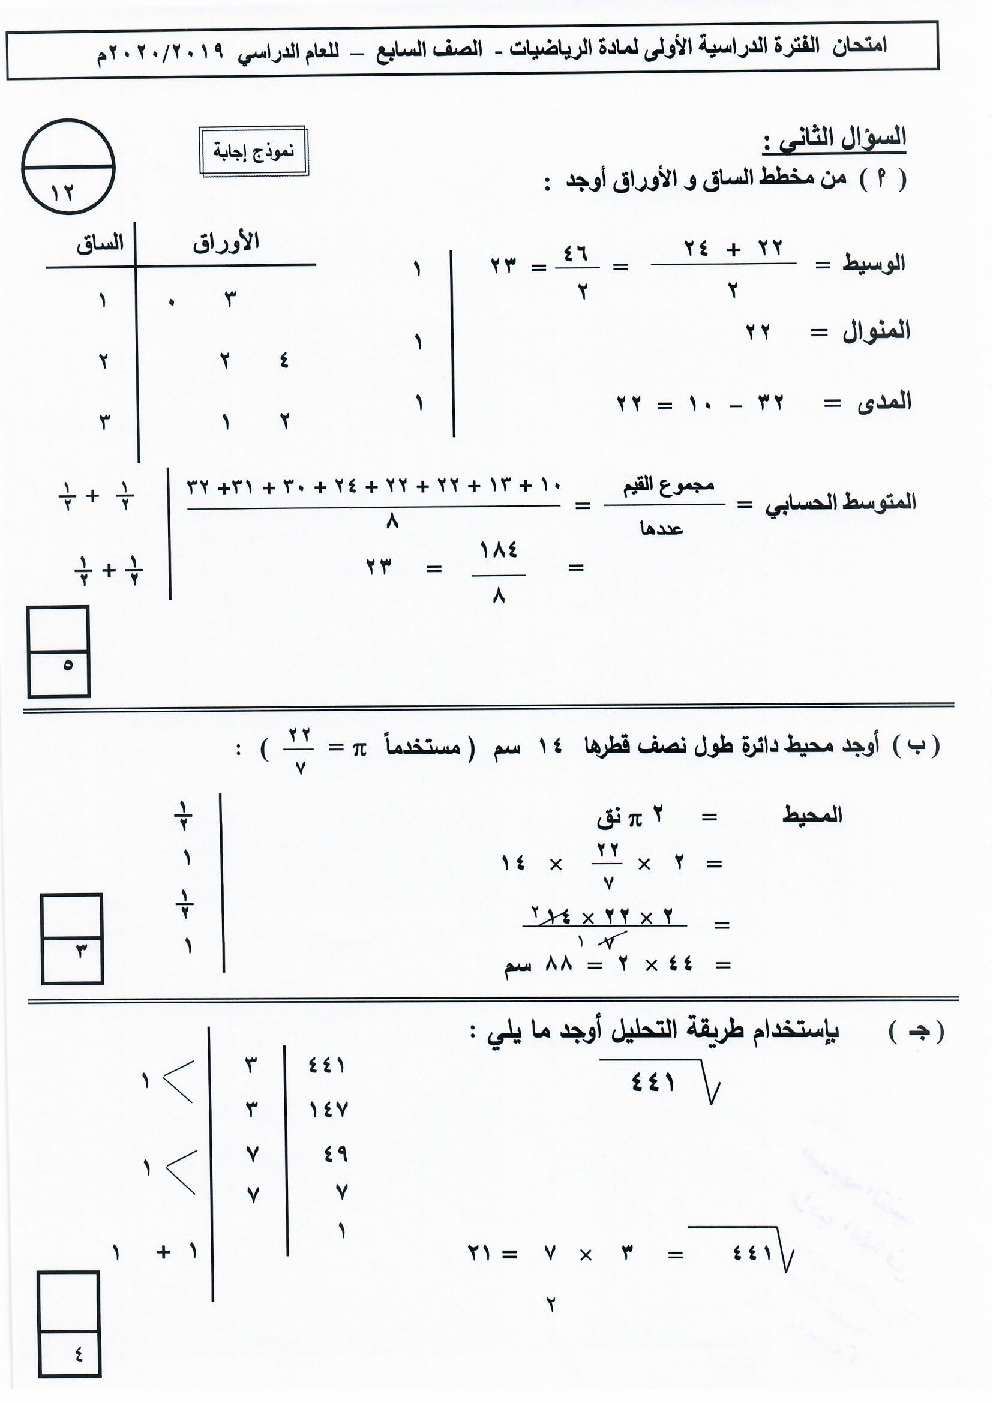 امتحان الفترة الدراسية الأولى لمادة الرياضيات - الصف السابع – للعام الدراسي ٢٠٢٠/٢٠١٩م
نموذج إجابة
١٢
السؤال الثاني :
( ٢ ) من مخطط الساق و الأوراق أوجد :
الساق | الأوراق
١ | ٠ ٣
٢ | ٢ ٤
٣ | ١ ٢
الوسيط = (٢٢ + ٢٤) / ٢ = ٤٦ / ٢ = ٢٣ | ١
المنوال = ٢٢ | ١
المدى = ٣٢ – ١٠ = ٢٢ | ١
المتوسط الحسابي = مجموع القيم / عددها = (١٠ + ١٣ + ٢٢ + ٢٢ + ٢٤ + ٣٠ + ٣١+ ٣٢) / ٨ | ١/٢ + ١/٢
= ١٨٤ / ٨ = ٢٣ | ١/٢ + ١/٢
٥
( ب ) أوجد محيط دائرة طول نصف قطرها ١٤ سم ( مستخدماً π = ٢٢/٧ ) :
المحيط = ٢ π نق | ١/٢
= ٢ × ٢٢/٧ × ١٤ | ١
= (٢ × ٢٢ × ١٤ ٢) / (٧ ١) | ١/٢
= ٤٤ × ٢ = ٨٨ سم | ١
٣
( جـ ) بإستخدام طريقة التحليل أوجد ما يلي :
√٤٤١
٤٤١ | ٣
١٤٧ | ٣ | ١
٤٩ | ٧
٧ | ٧ | ١
١
√٤٤١ = ٣ × ٧ = ٢١ | ١ + ١
٢
٤